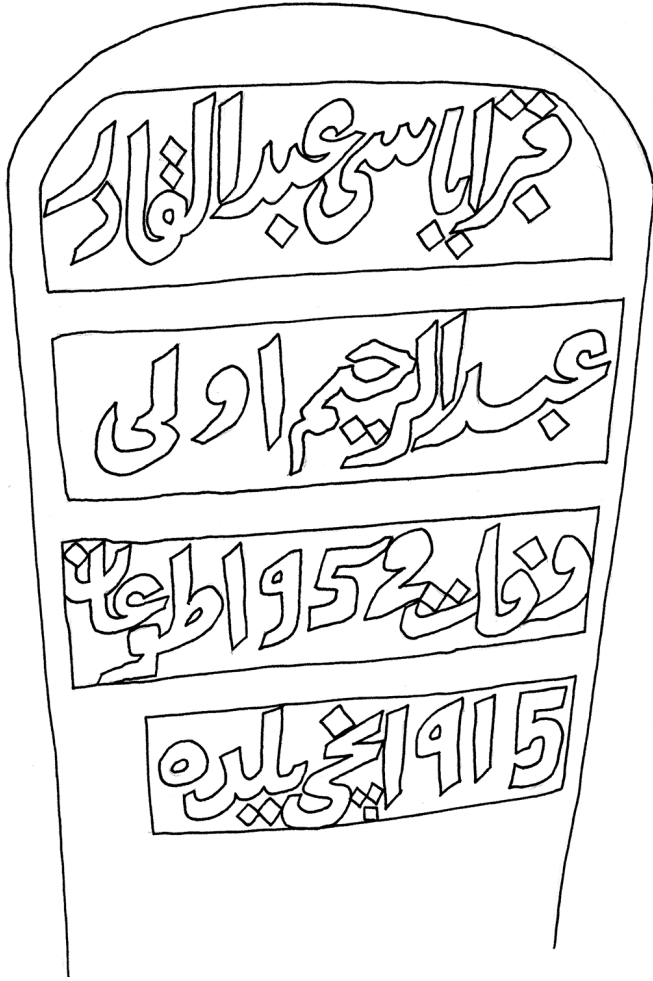 قبر اياسى عبدالقادر
عبدالرحيم اولى
وفات 1952 طوغان
1915 نچى يلده